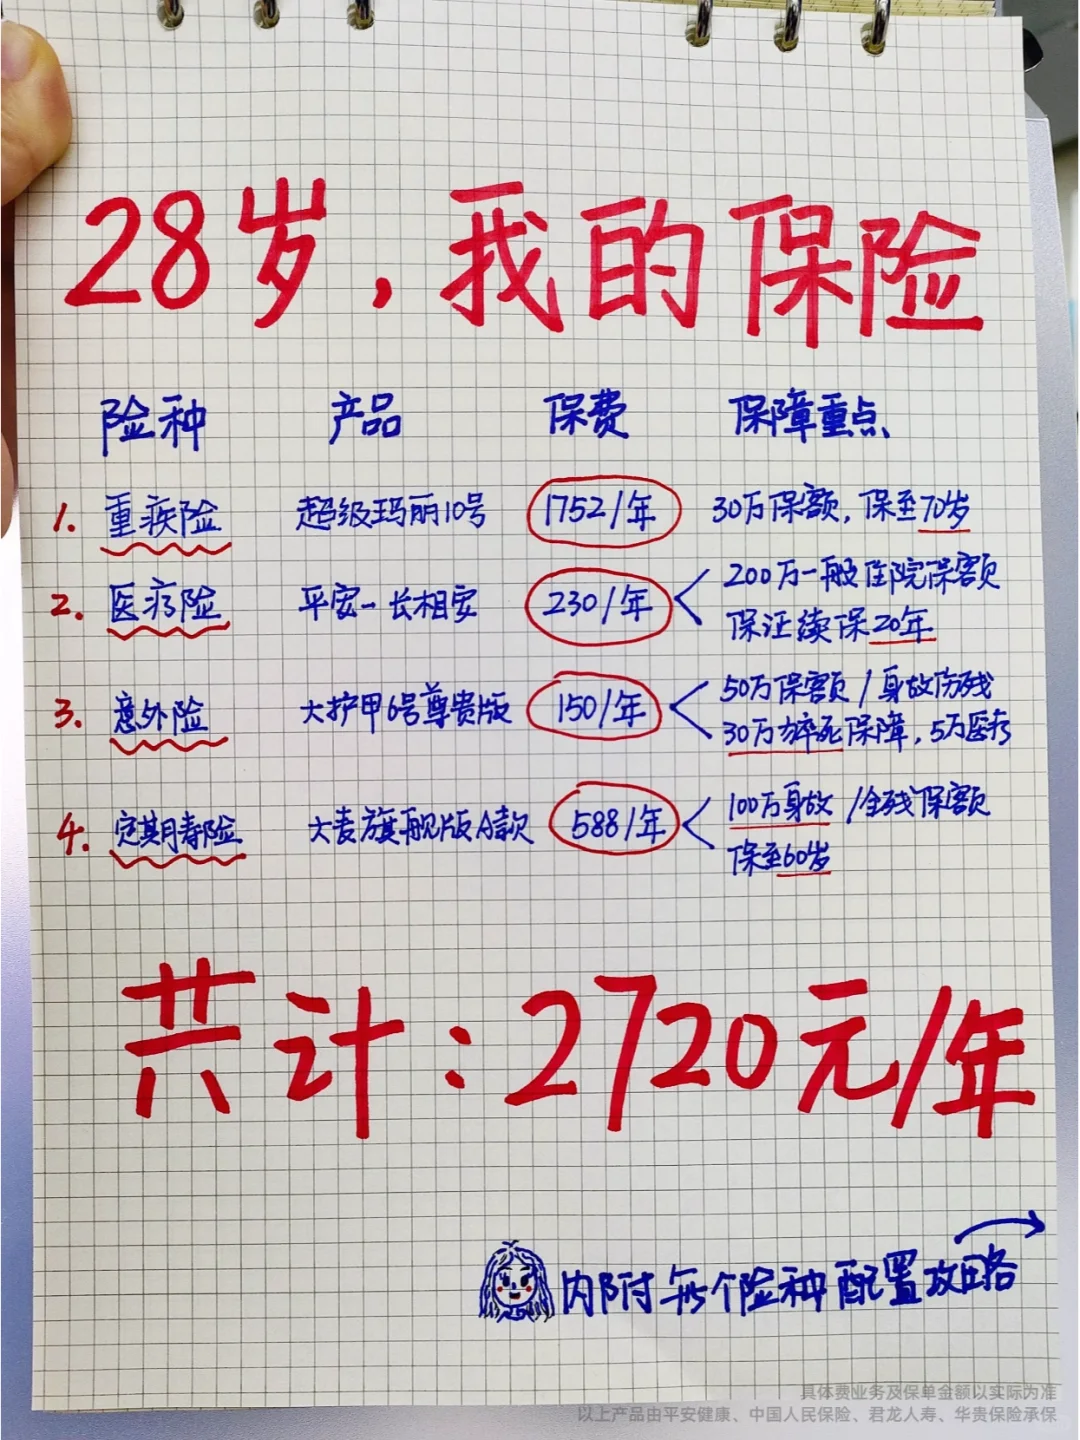 28岁,我的保险
险种 产品 保费 保障重点
1. 重疾险 超级玛丽10号 1752/年 30万保额,保至70岁
2. 医疗险 平安-长相安 230/年 200万一般住院保额
保证续保20年
3. 意外险 大护甲6号尊贵版 150/年 50万保额/身故伤残
30万猝死保障,5万医疗
4. 定期寿险 大麦旗舰版A款 588/年 100万身故/全残保额
保至60岁
共计:2720元/年
内附每个险种配置攻略
具体费业务及保单金额以实际为准
以上产品由平安健康、中国人民保险、君龙人寿、华贵保险承保